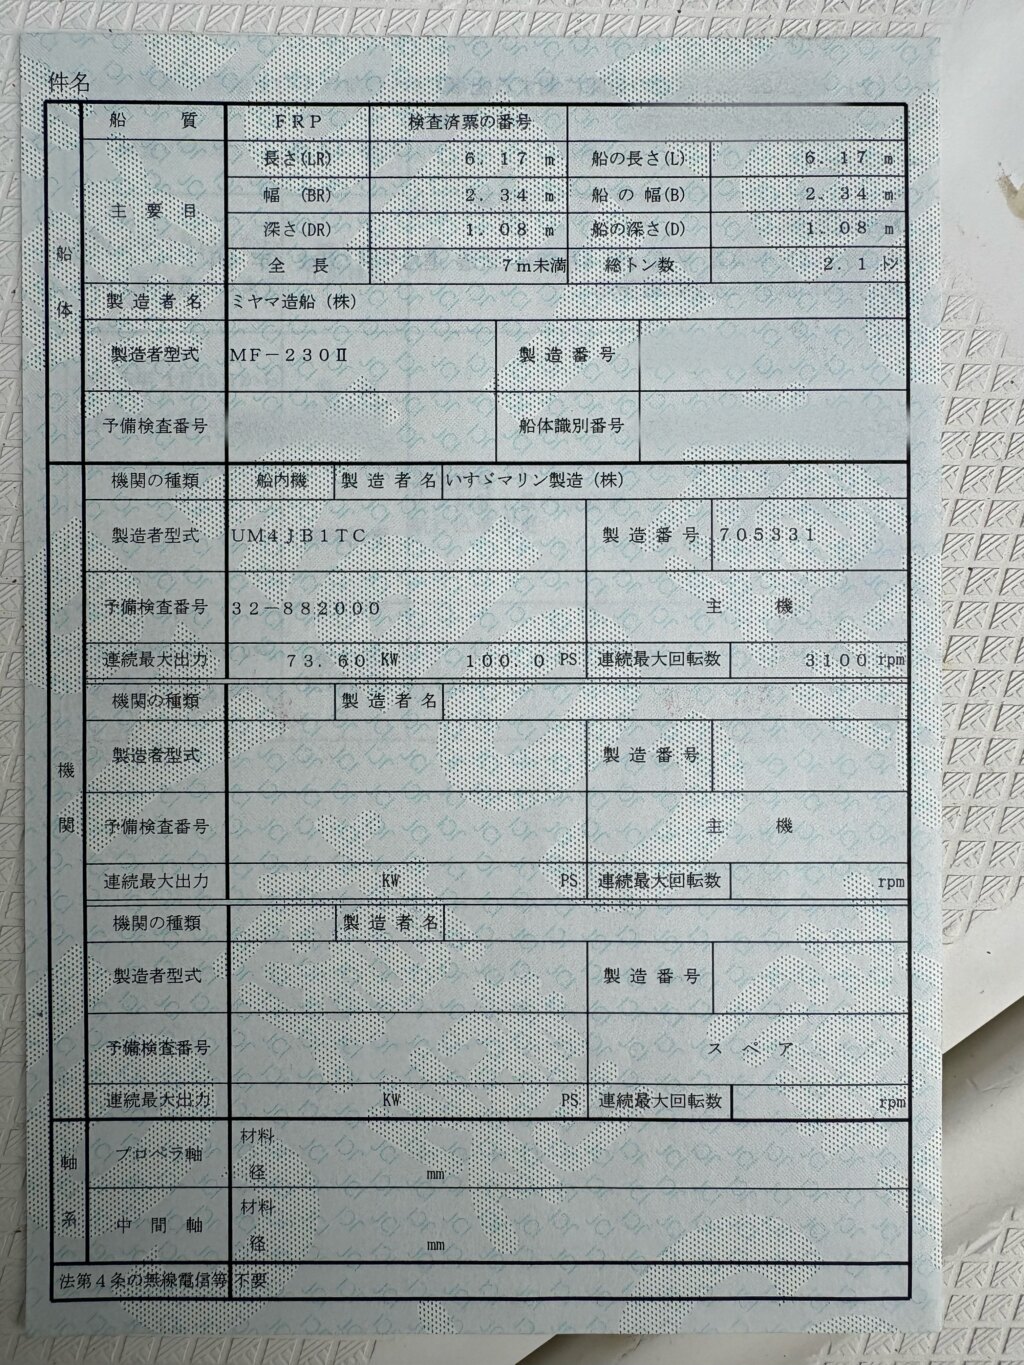 件名
船体
船質 FRP 検査済票の番号
主要目 長さ(LR) 6.17 m 船の長さ(L) 6.17 m
幅 (BR) 2.34 m 船の幅(B) 2.34 m
深さ(DR) 1.08 m 船の深さ(D) 1.08 m
全長 7m未満 総トン数 2.1 トン
製造者名 ミヤマ造船(株)
製造者型式 MF-230Ⅱ 製造番号
予備検査番号 船体識別番号
機関
機関の種類 船内機 製造者名 いすゞマリン製造(株)
製造者型式 UM4JB1TC 製造番号 705331
予備検査番号 32-882000 主機
連続最大出力 73.60 KW 100.0 PS 連続最大回転数 3100 rpm
機関の種類 製造者名
製造者型式 製造番号
予備検査番号 主機
連続最大出力 KW PS 連続最大回転数 rpm
機関の種類 製造者名
製造者型式 製造番号
予備検査番号 スペア
連続最大出力 KW PS 連続最大回転数 rpm
軸系
プロペラ軸 材料
径 mm
中間軸 材料
径 mm
法第4条の無線電信等 不要